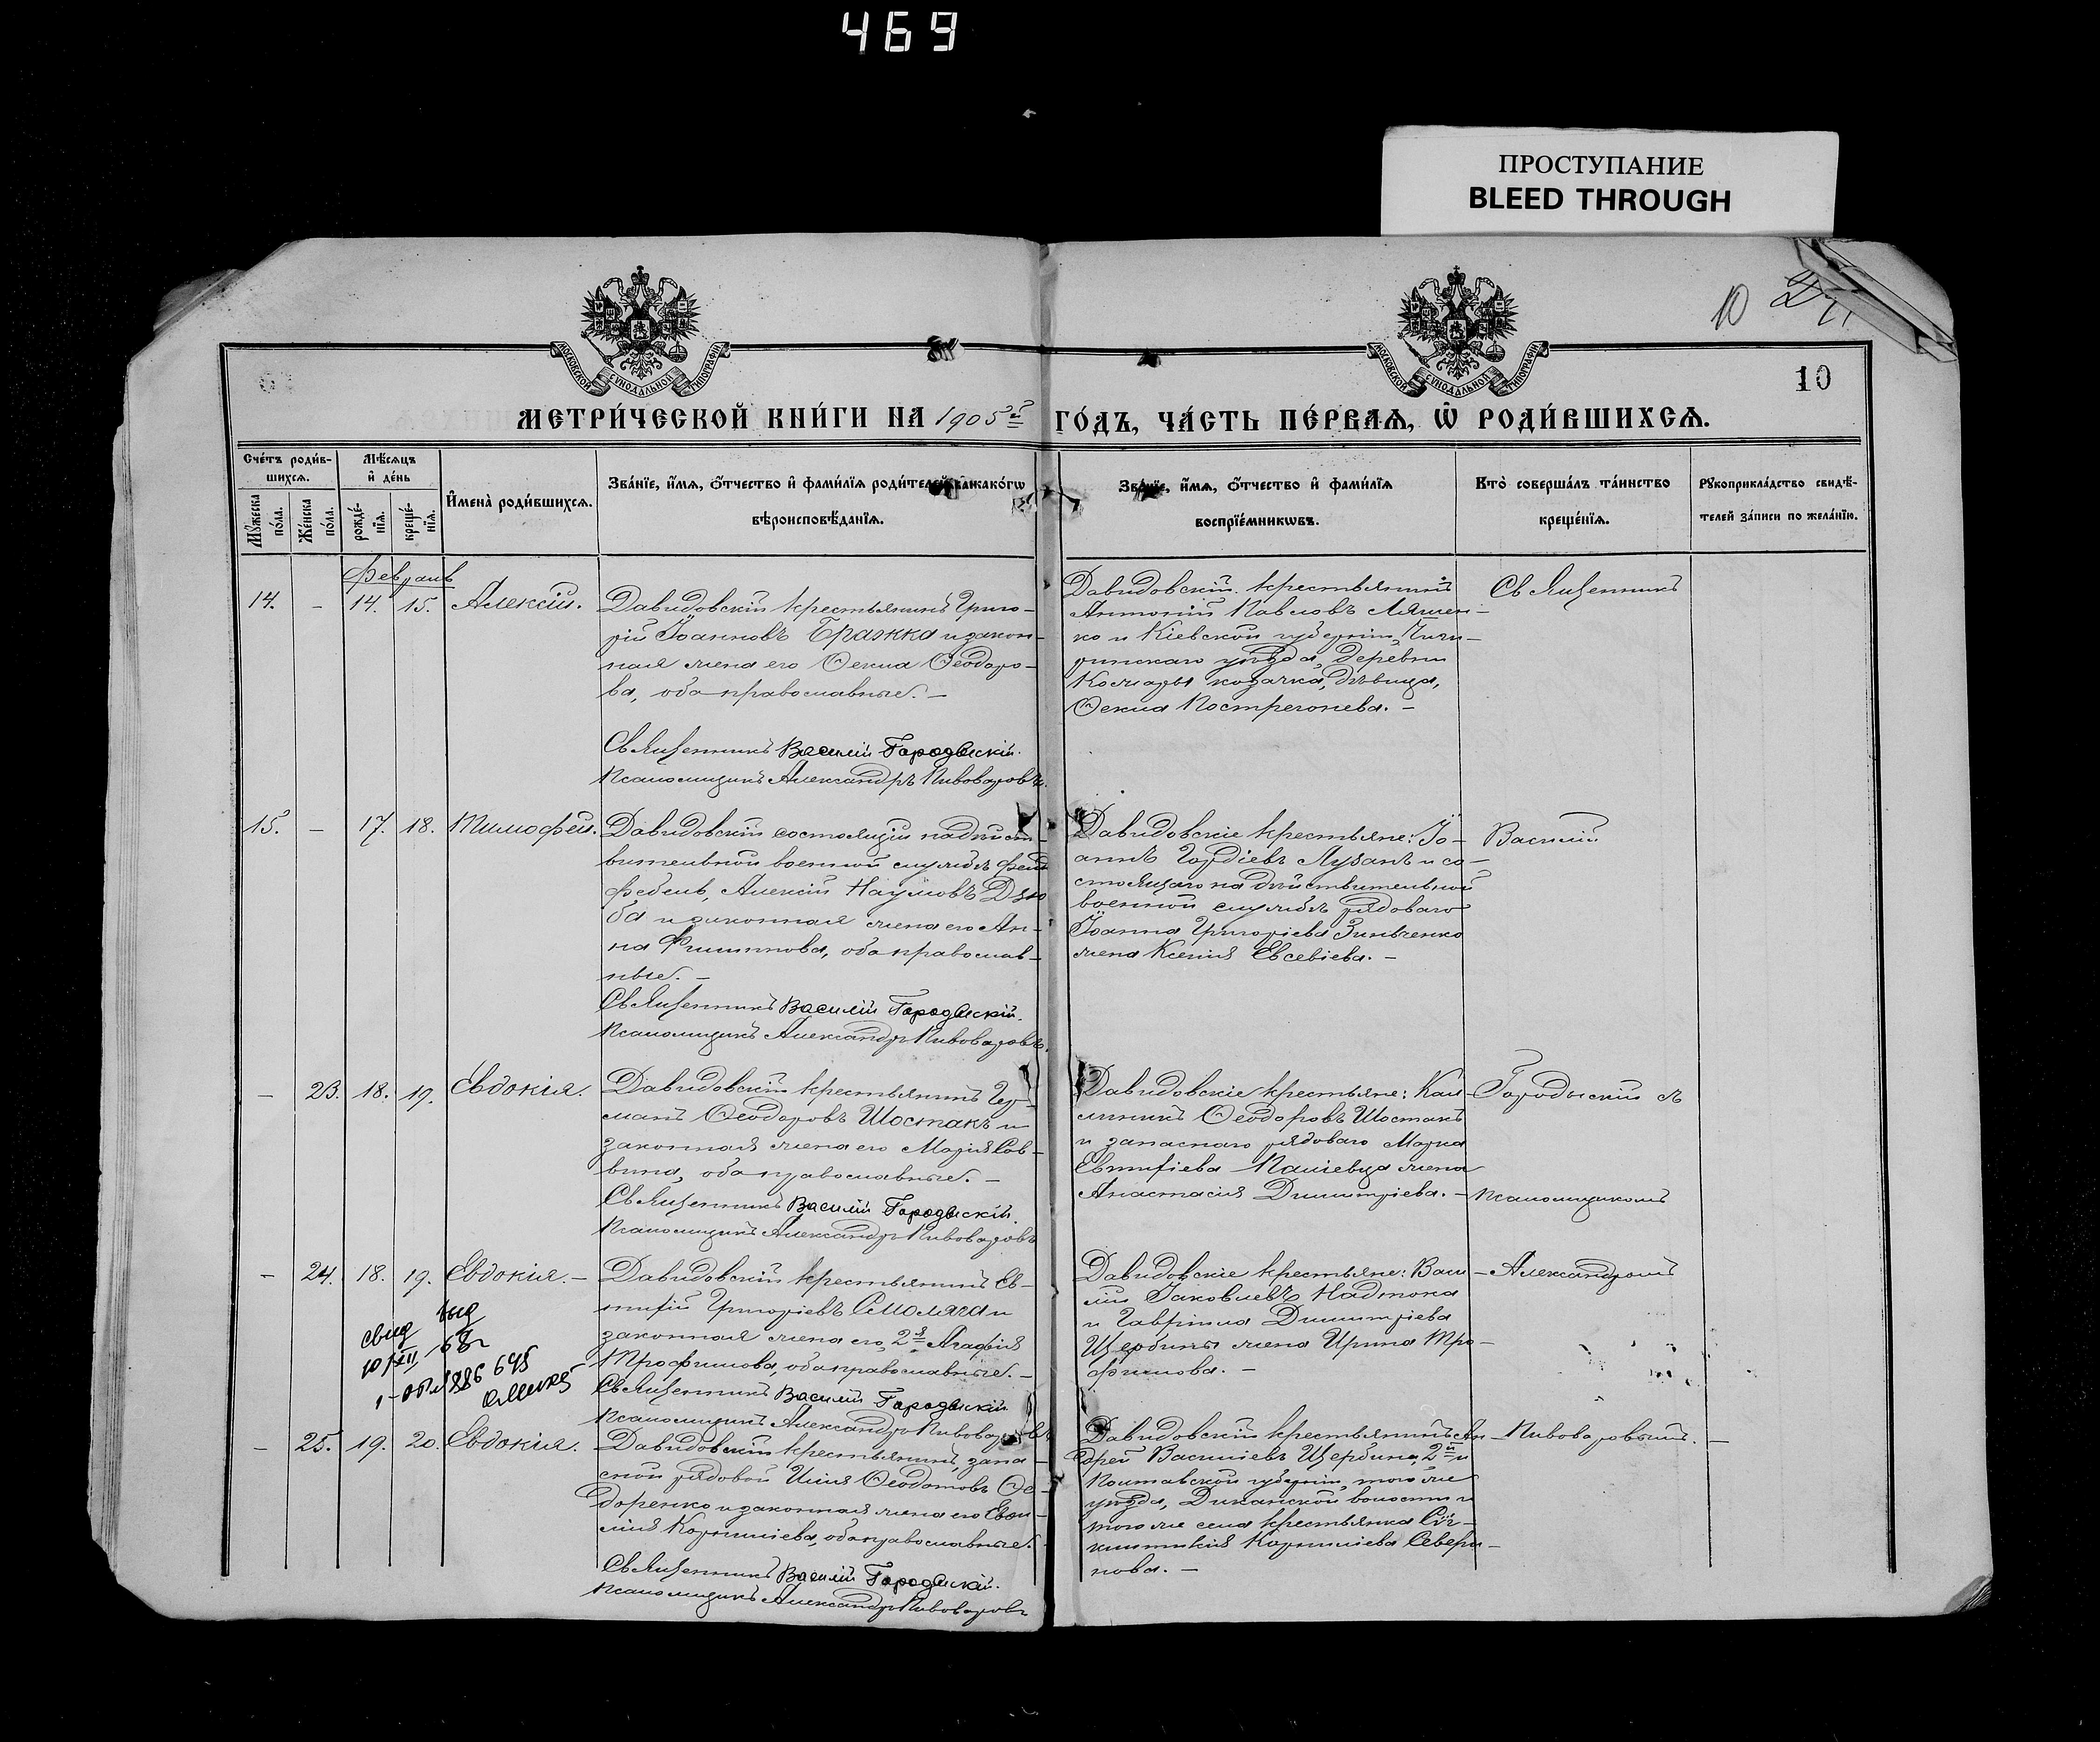 469
ПРОСТУПАНИЕ
BLEED THROUGH
10
10
МОСКОВСКОЙ СѴНОДАЛЬНОЙ ТИПОГРАФІИ
МОСКОВСКОЙ СѴНОДАЛЬНОЙ ТИПОГРАФІИ
МЕТРИ́ЧЕСКОЙ КНИ́ГИ НА 1905й ГО́ДЪ, ЧА́СТЬ ПЕ́РВАѦ, Ѡ РОДИ́ВШИХСѦ.
Сче́тъ роди́в-
шихсѧ.
Мꙋжеска по́ла.
Же́нска по́ла.
Мѣ́сѧцъ
и де́нь
рожде́-
нїѧ.
креще́-
нїѧ.
И҆мена̀ роди́вшихсѧ.
Зва́нїе, и҆́мѧ, ѻ҆́тчество и҆ фами́лїѧ роди́телей, и какогѡ
вѣроисповѣ́данїѧ.
Зва́нїе, и҆́мѧ, ѻ҆́тчество и҆ фами́лїѧ
воспрїе́мникѡвъ.
Кто̀ соверша́лъ та́инство
креще́нїѧ.
Рꙋкоприкла́дство свидѣ́-
телей за́писи по жела́нїю.
Февраль
14. - 14. 15. Алексій.
Давидовскій крестьянинъ Григо-
рій Іоанновъ Бражка и закон-
ная жена его Ѳекла Ѳеодоро-
ва, оба православные. -
Священникъ Василій Городыскій.
Псаломщикъ Александръ Пивоваровъ.
Давидовскій крестьянинъ
Антоній Павловъ Ляшен-
ко и Кіевской губерніи, Чиги-
ринскаго уѣзда, деревни
козачка, дѣвица,
Ѳекла
Священникъ
15. - 17. 18. Тимофей.
Давидовскій состоящій на дѣйст-
вительной военной службѣ фельд
фебель, Алексій Наумовъ Дзю
ба и законная жена его Ан-
на Филиппова, оба православ-
ные. -
Священникъ Василій Городыскій.
Псаломщикъ Александръ Пивоваровъ.
Давидовскіе крестьяне: Іо-
аннъ Гордіевъ Лузанъ и со-
стоящаго на дѣйствительной
военной службѣ рядоваго
Іоанна Григоріева Зинченко
жена Ксенія Евсевіева. -
Василій
- 23. 18. 19. Евдокія.
Давидовскій крестьянинъ Гер-
манъ Ѳеодоровъ Шостакъ и
законная жена его Марія Сав-
вина, оба православные. -
Священникъ Василій Городыскій.
Псаломщикъ Александръ Пивоваровъ
Давидовскіе крестьяне: Кал-
линикъ Ѳеодоровъ Шостакъ
и запаснаго рядоваго Марка
Евтифіева жена
Анастасія Димитріева. -
Городыскій съ
псаломщикомъ
- 24. 18. 19. Евдокія. -
Давидовскій крестьянинъ Ев-
тифій Григорьевъ Смоляга и
законная жена его, 2я Агафія
Трофимова, оба православные. -
Священникъ Василій Городыскій
Псаломщикъ Александръ Пивоваровъ
Давидовскіе крестьяне: Васи-
лій Іаковлевъ Надтока
и Гавріила Димитріева
Щербины жена Ирина Тро-
фимова. -
Александромъ
свид выд
10/XII 68г
886 695
- 25. 19. 20. Евдокія.
Давидовскій крестьянинъ, запа-
сной рядовой Илія Ѳеодотовъ Ѳе-
доренко и законная жена его Евфи-
мія Корниліева, оба православные.
Священникъ Василій Городыскій.
Псаломщикъ Александръ Пивоваровъ
Давидовскій крестьянинъ Ан-
дрей Василіевъ Щербина, 2й и
Полтавской губерніи, того же
уѣзда, Диканской волости и
того же села крестьянка Сѵн-
клитикія Корниліева Севери-
нова. -
Пивоваровымъ. -